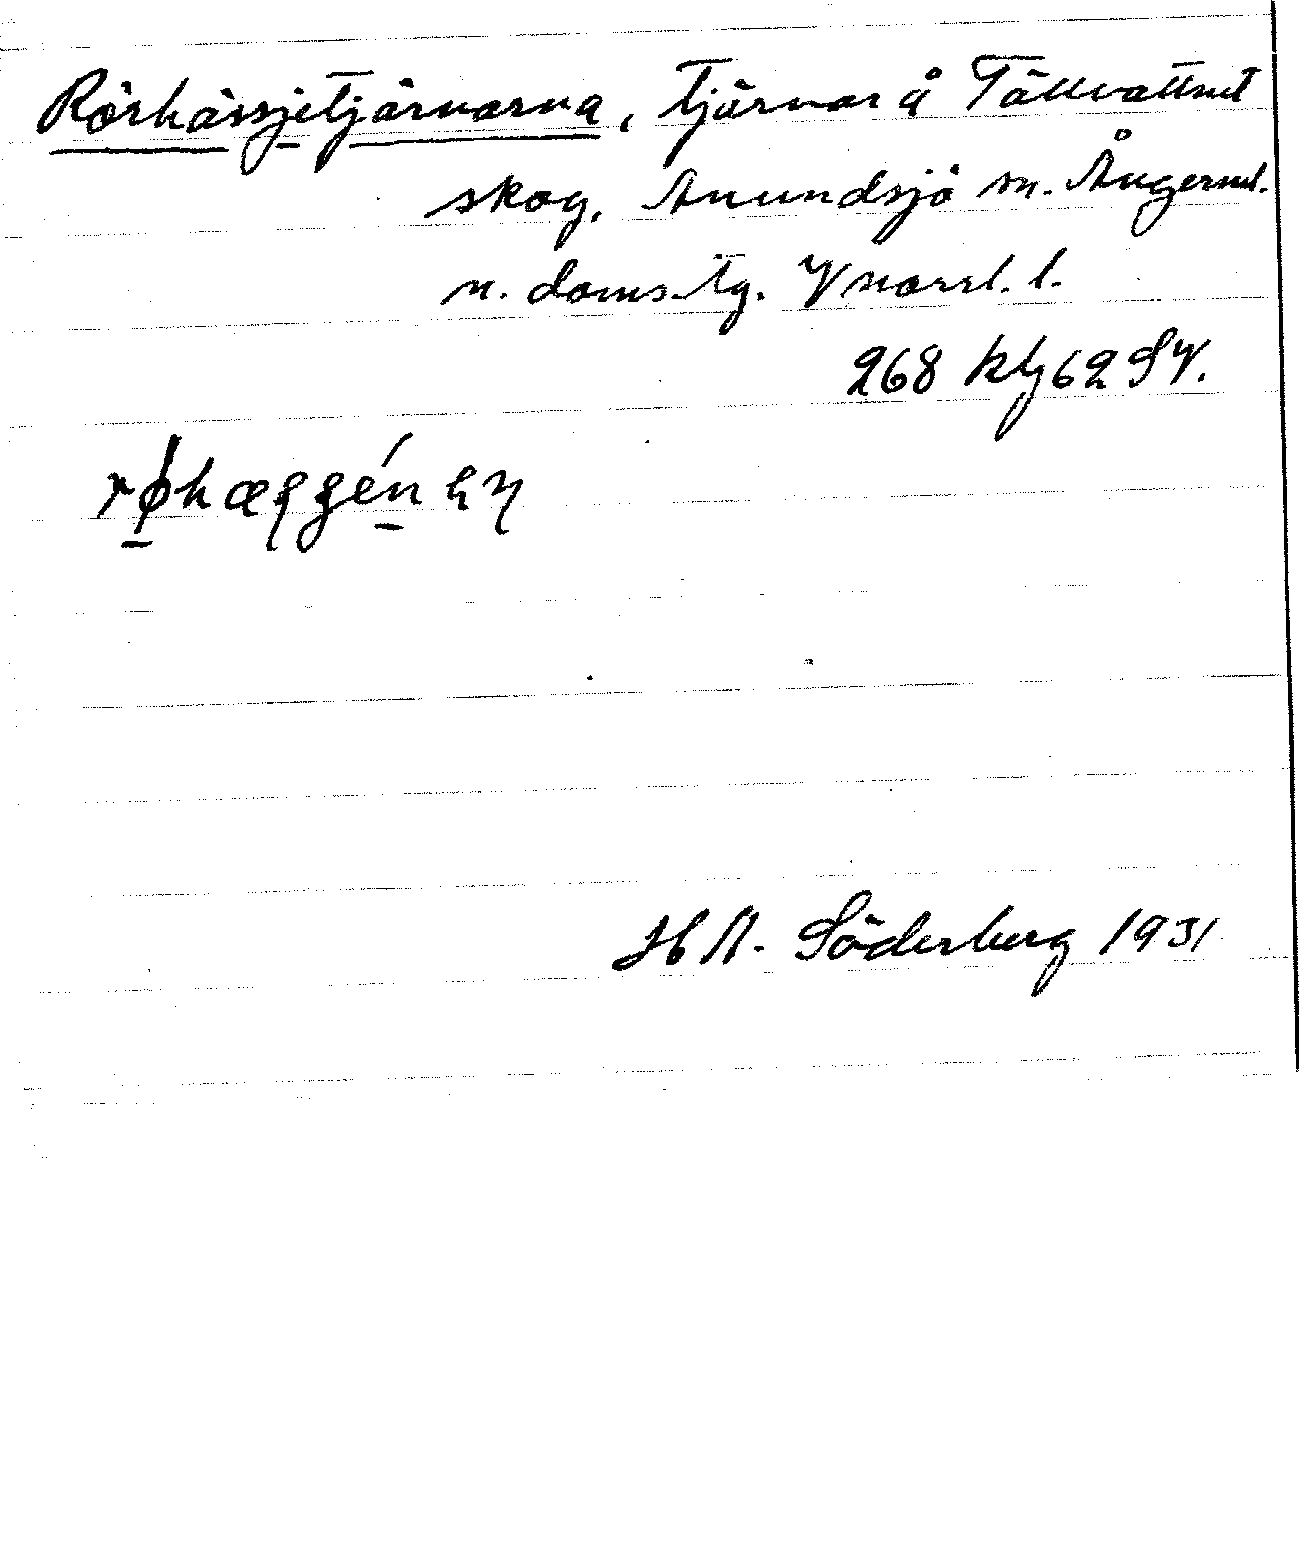 Rörhässjetjärnarna, tjärnar å Tällvattnet
skog, Anundsjö sn. Ångerml.
n. doms. tg. Vnorrl. l.
268 klg 62 SV.
H A. Söderberg 1931